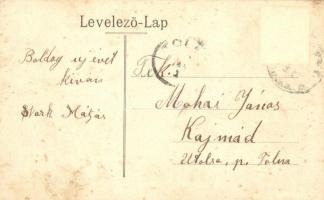 Levelező-Lap
Boldog uj évet
kiván
Stark Mátyás
Tek.
Mohai János
Kajmád
Utolsó p. Tolna